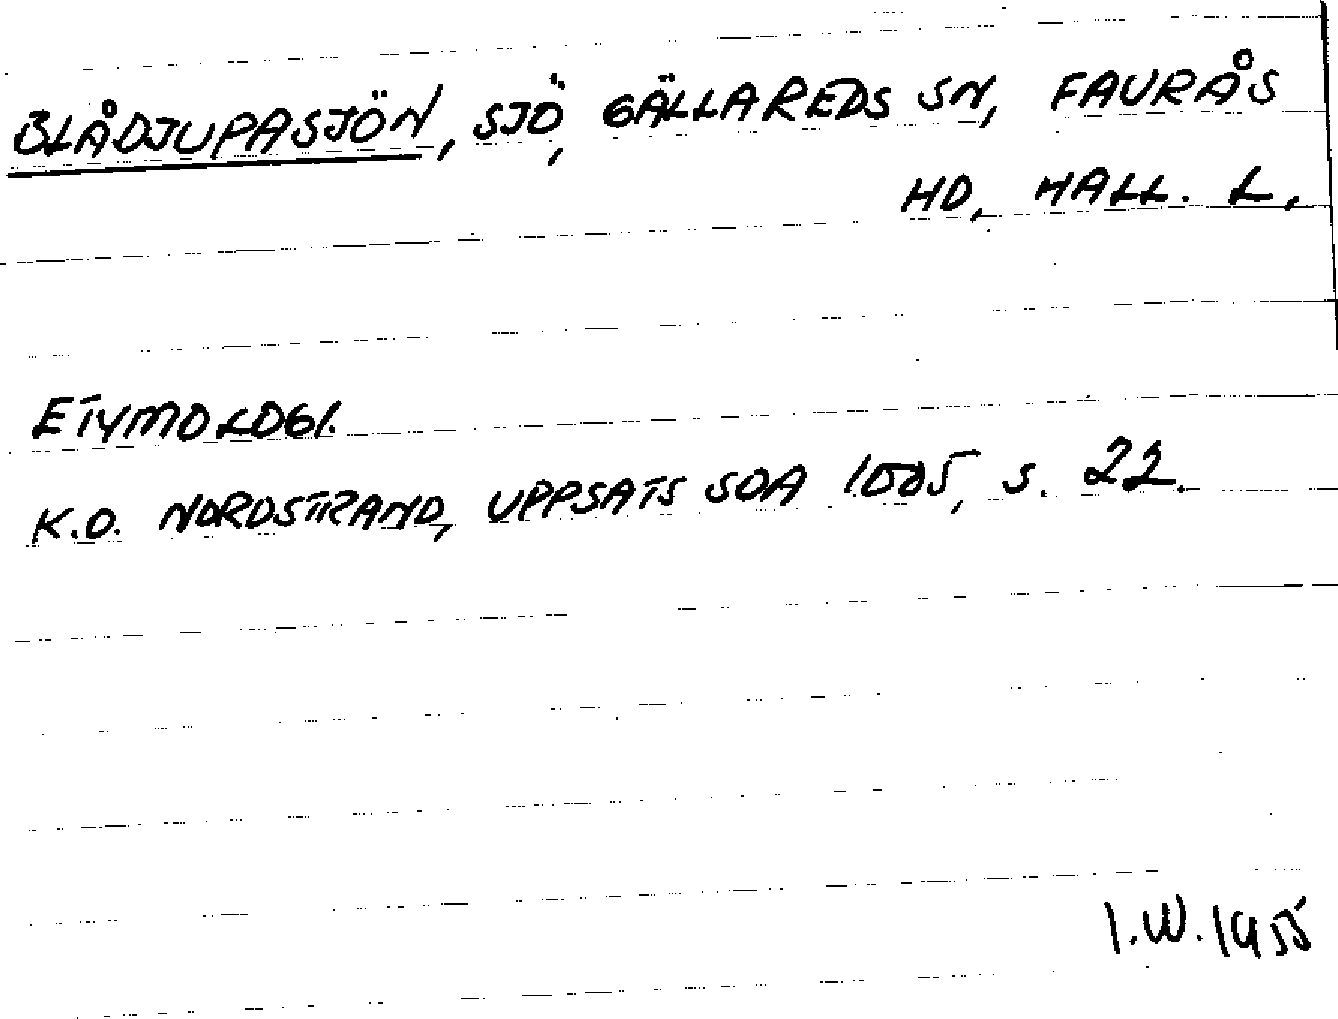 BLÅDJUPASJÖN, SJÖ, GÄLLAREDS SN, FAURÅS
HD, HALL. L.
ETYMOLOGI.
K.O. NORDSTRAND, UPPSATS SOA, S. 22.
I.W. 1955